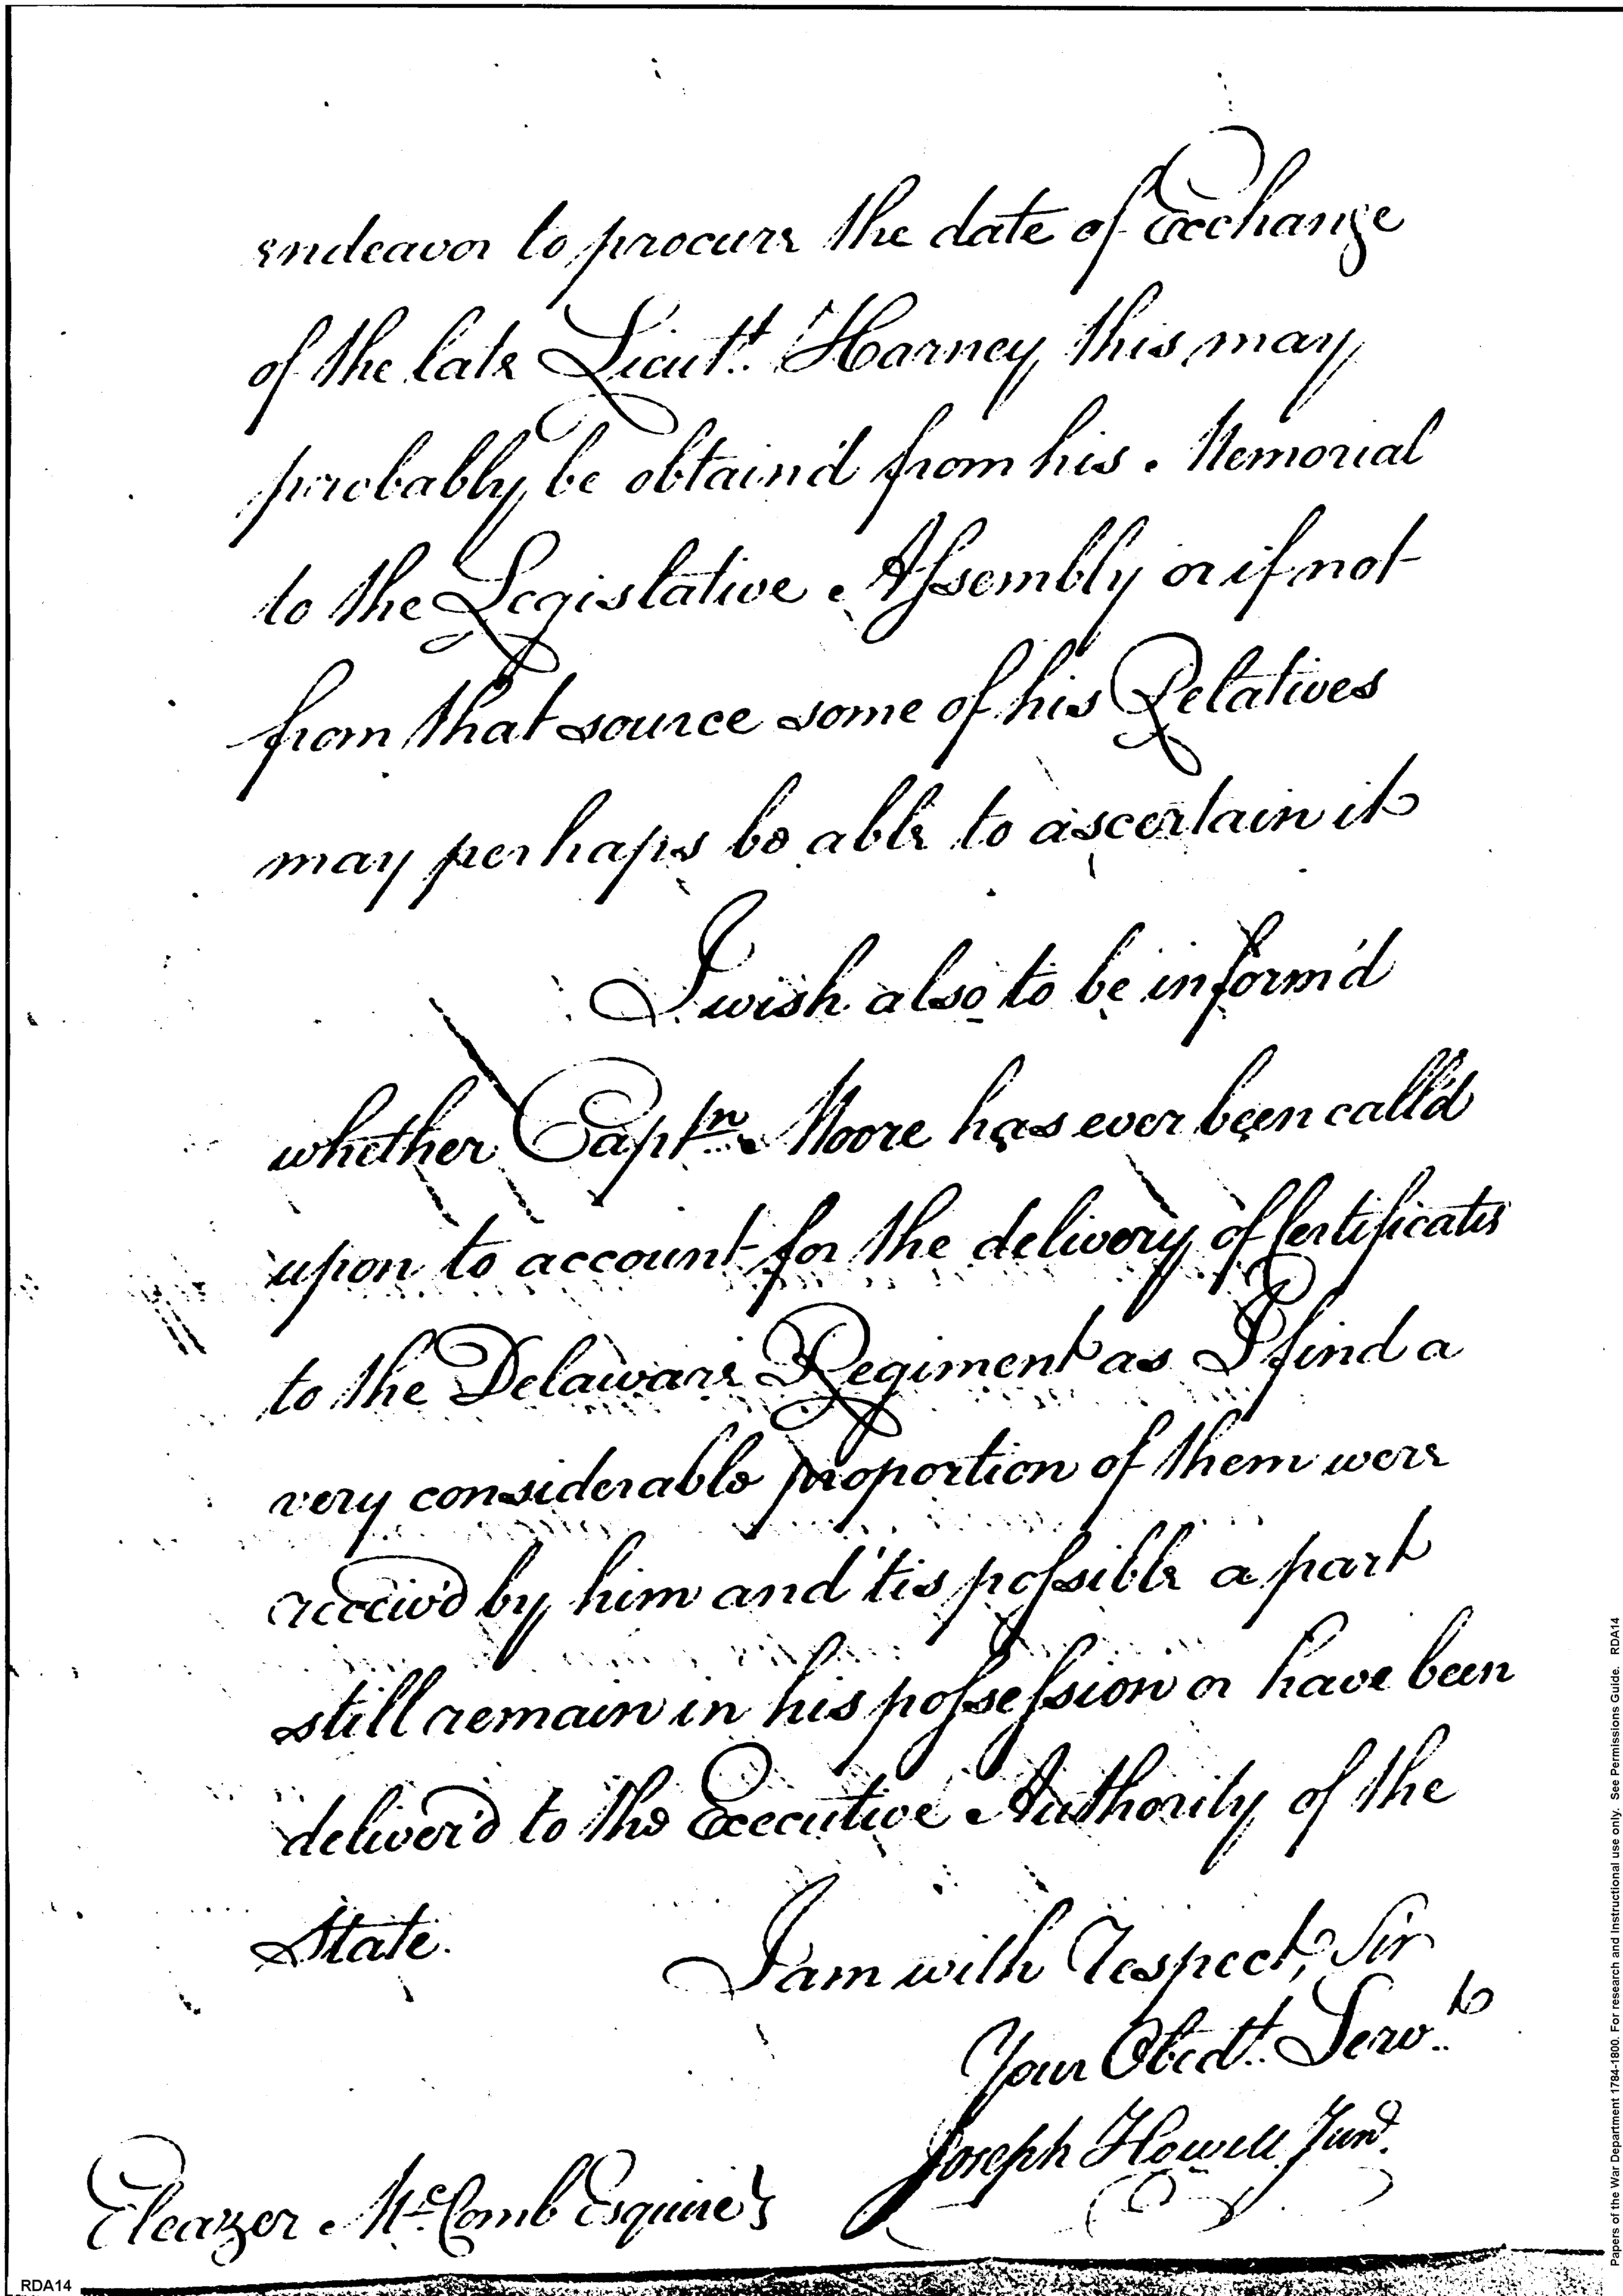 endeavor to procure the date of Exchange
of the late Lieutt. Harney, this may
probably be obtain'd from his Memorial
to the Legislative Assembly or if not
from that source some of his Relatives
may perhaps be able to ascertain it
I wish also to be inform'd
whether Captn. Moore has ever been call'd
upon to account for the delivery of Certificates
to the Delaware Regiment as I find a
very considerable proportion of them were
receiv'd by him and 'tis possible a part
still remain in his possession or have been
deliver'd to the Executive Authority of the
State.
I am with Respect, Sir
Your Obedt. Servt.
Joseph Howell Junr.
Eleazer McComb Esquire
RDA14
Papers of the War Department 1784-1800. For research and Instructional use only. See Permissions Guide. RDA14